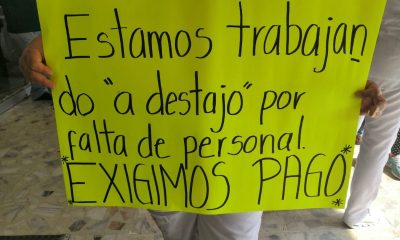 Estamos trabajan
do "a destajo" por
falta de personal.
*EXIGIMOS PAGO*